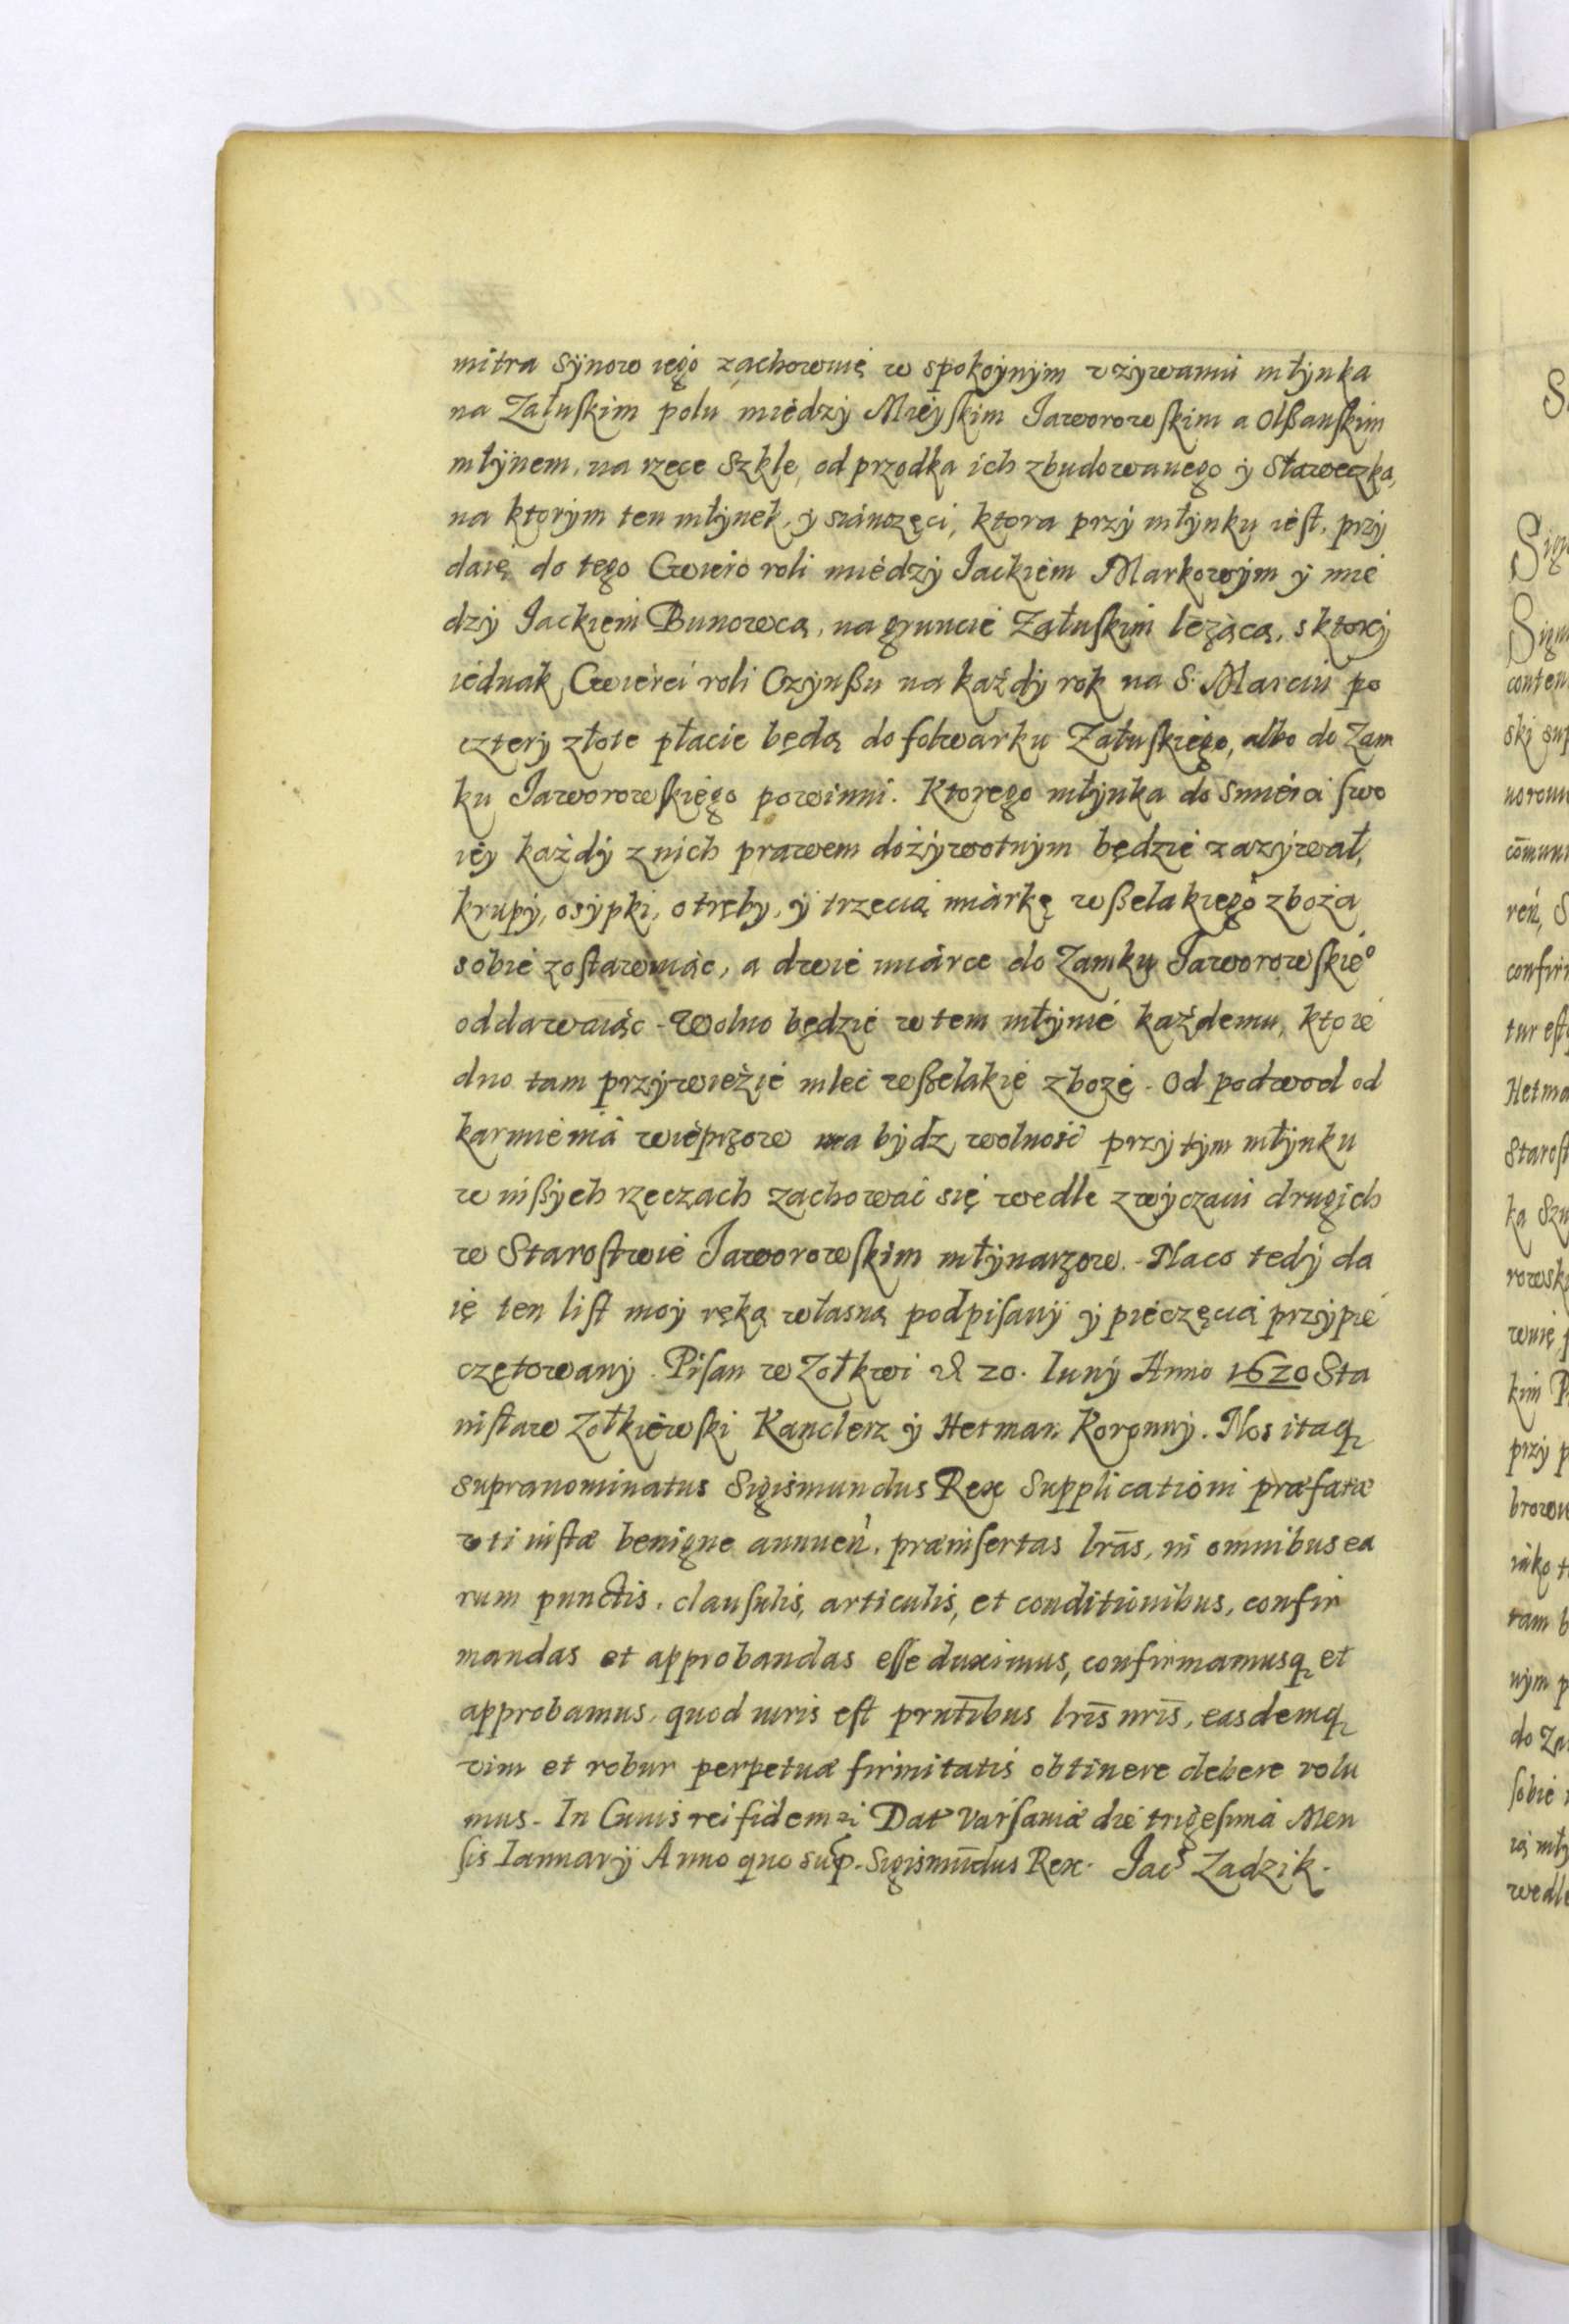 mitra Synow iego zachownię w spokoynym vżywaniu młynka
na Załuskim polu między Mieyskim Jaworowskim a Olßanskim
młynem, na rzece Szkle, od przodka ich zbudowanego y Staweczka,
na ktorym ten młynek, y sianożęci, ktora przy młynku iest, przy
daię do tego Cwierć roli między Jackiem Markowym y mię
dzy Jackiem Bunowcą, na gruncie Załuskim leżącą, s ktorey
iednak Cwierci roli Czynßu na każdy rok na S. Marcin po
cztery złote płacic będą do folwarku Załuskiego, albo do Zam
ku Jaworowskiego powinni. Ktorego młynka do smierci swo
iey każdy z nich prawem dożywotnym będzie zazywał,
krupy, osypki, otręby, y trzecią miarkę wßelakiego zboża
sobie zostawuiąc, a dwie miarce do Zamku Jaworowskieº
oddawaiąc. Wolno będzie w tem młynie każdemu, kto ie
dno tam przywiezie mleć wßelakie zboże. Od podwod od
karmienia wieprzow ma bydz wolność przy tym młynku
w inßych rzeczach zachować się wedle zwyczaiu drugich
w Starostwie Jaworowskim młynarzow. Na co tedy da
ię ten list moy ręką własną podpisany y pieczęcią przypie
czętowany. Pisan w Zołkwi d 20. Iuny Anno 1620 Sta
nisław Zołkiewski Kanclerz y Hetman Koronny. Nos itaq
supranominatus Sigismundus Rex Supplicationi præfatæ
vti iustæ benigne annueń, præinsertas lrās, in omnibus ea
rum punctis, clausulis, articulis, et conditionibus, confir
mandas et approbandas esse duximus, confirmamusq et
approbamus, quod iuris est prntībus lrīs nrīs, easdemq
vim et robur perpetuæ firmitatis obtinere debere volu
mus. In Cuius rei fidem Dat Varsaviæ die trigesima Men
sis Ianuarÿ Anno quo sup. Sigismūdus Rex. Jac Zadzik.